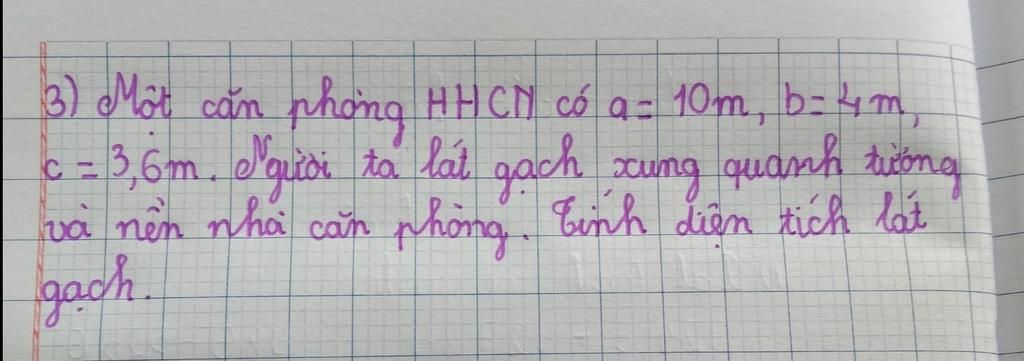 3) Một căn phòng HHCN có a = 10m, b = 4m,
c = 3,6m. Người ta lát gạch xung quanh tường
và nền nhà căn phòng. Tính diện tích lát
gạch.